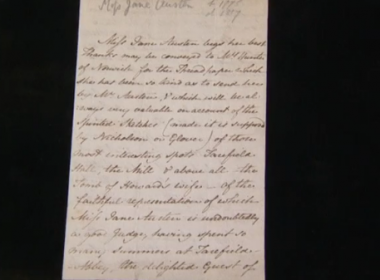 Miss Jane Austen
Miss Jane Austen begs her best
Thanks may be conveyed to Mrs
of Norwich for the Threadpaper which
she has been so kind as to send her
by Mr Austen, & which will be al
ways very valuable on account of the
Spirited Sketches (made it is supposed
by Nicholson or Glover) of the
most interesting spots, Tarefield
Hall, the Mill & above all the
Tomb of Howard's wife - of the
faithful representation of which
Miss Jane Austen is undoubtedly
a good judge, having spent so
many summers at Tarefield
Abbey the delighted Guest of